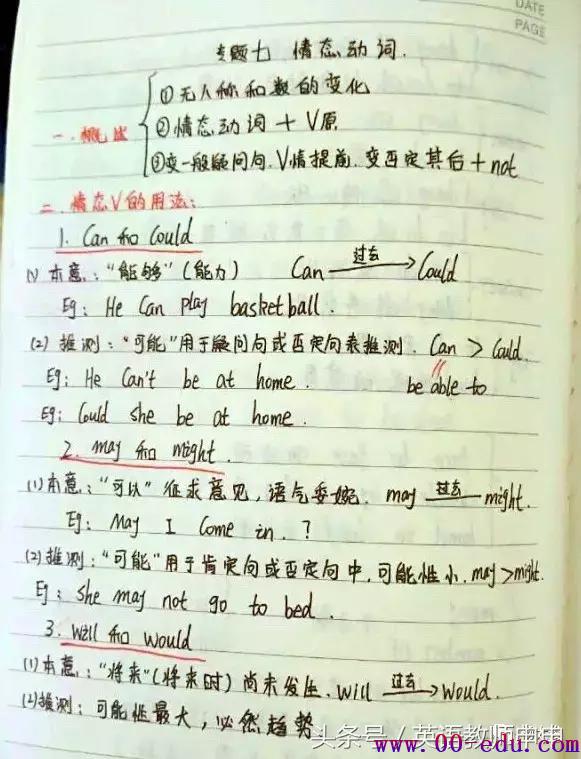 DATE
PAGE
专题七 情态动词.
一.概述
①无人称和数的变化
②情态动词+V原
③变一般疑问句.V情提前.变否定其后+not
二.情态V的用法:
1. Can 和 Could
(1) 本意:"能够"(能力) Can 过去 Could
Eg: He Can play basketball.
(2) 推测:"可能"用于疑问句或否定句来推测. Can > Could.
Eg: He Can't be at home. be able to
Eg: Could she be at home.
2. may 和 might
(1)本意:"可以"征求意见,语气委婉. may 过去 might.
Eg: May I Come in.?
(2)推测:"可能"用于肯定句或否定句中,可能性小.may>might.
Eg: She may not go to bed.
3. Will 和 would
(1)本意:"将来"(将来时)尚未发生.will 过去 would.
(2)推测:可能性最大,必然趋势
头条号/英语教师申坤
www.00-edu.com